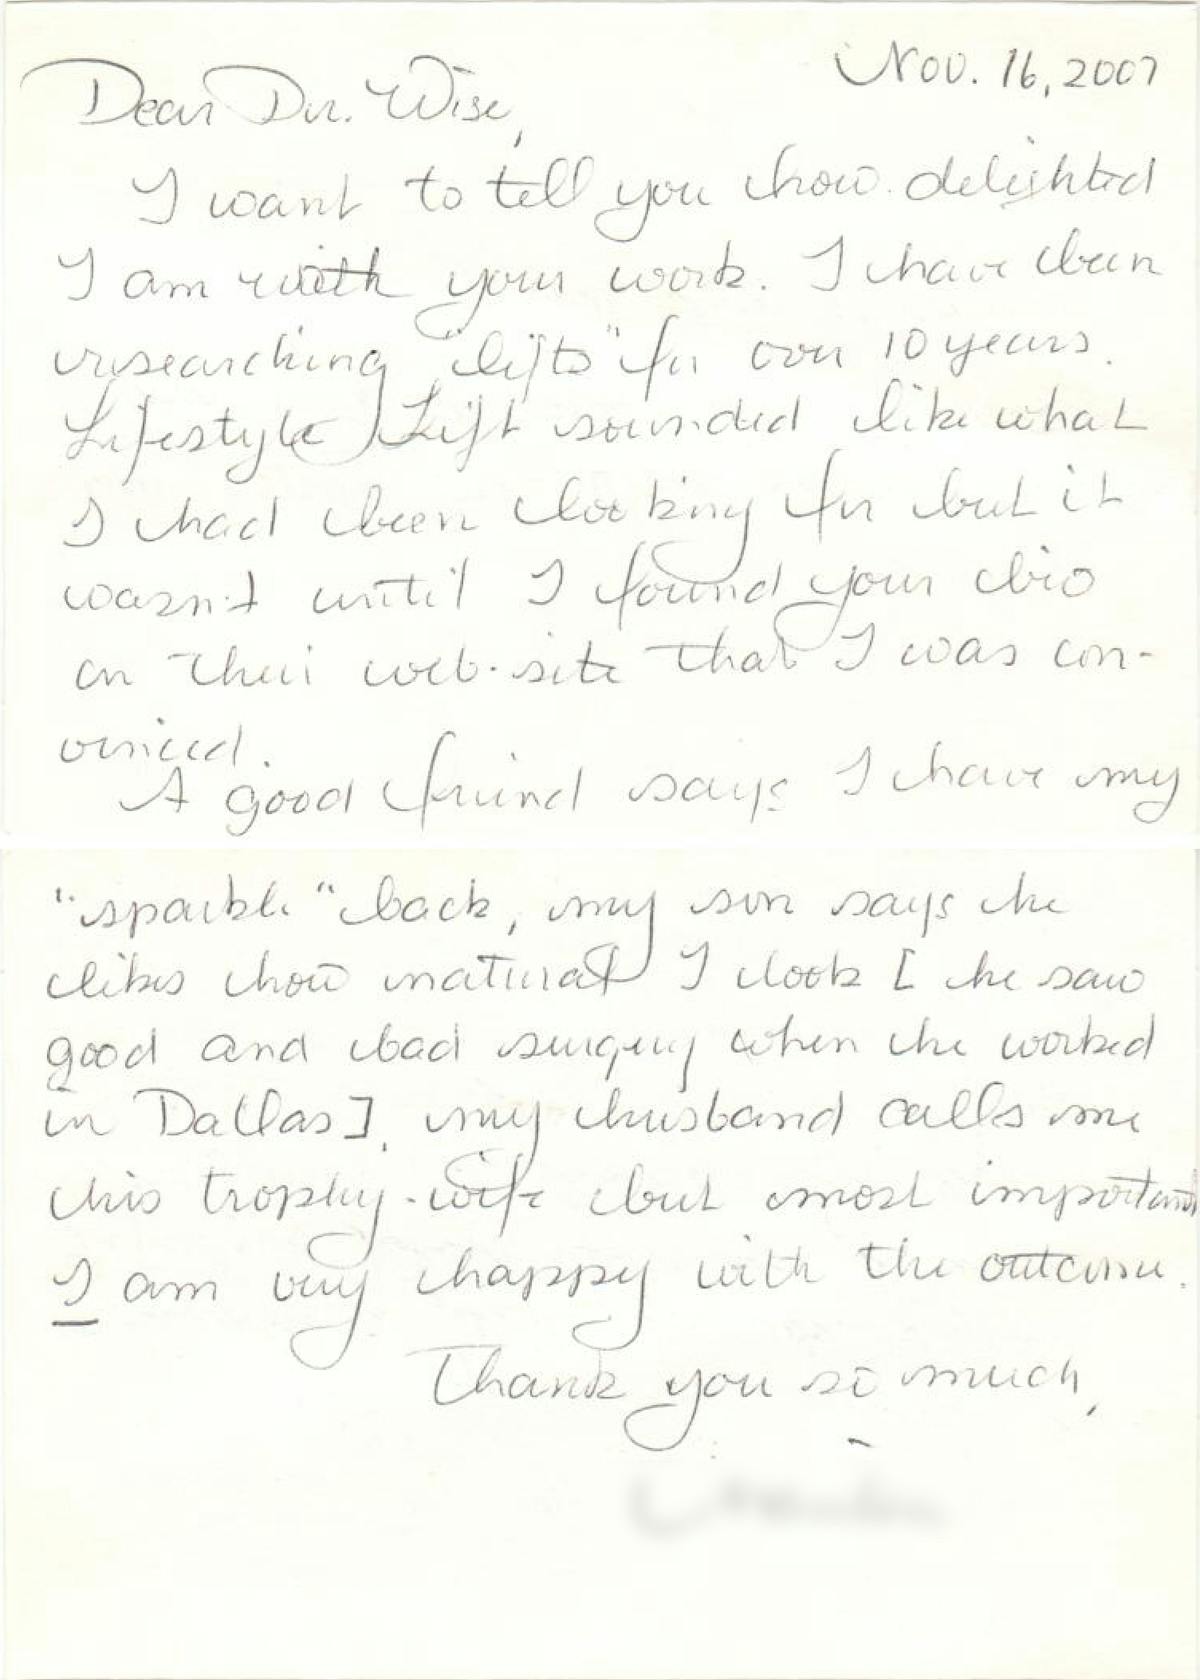 Nov. 16, 2007
Dear Dr. Wise,
I want to tell you how delighted
I am with your work. I have been
researching "lifts" for over 10 years.
Lifestyle Lift sounded like what
I had been looking for but it
wasn't until I found your bio
on their web-site that I was con-
vinced.
A good friend says I have my
"sparkle" back, my son says he
likes how natural I look [he saw
good and bad surgery when he worked
in Dallas], my husband calls me
his trophy-wife but most important
I am very happy with the outcome.
Thank you so much,